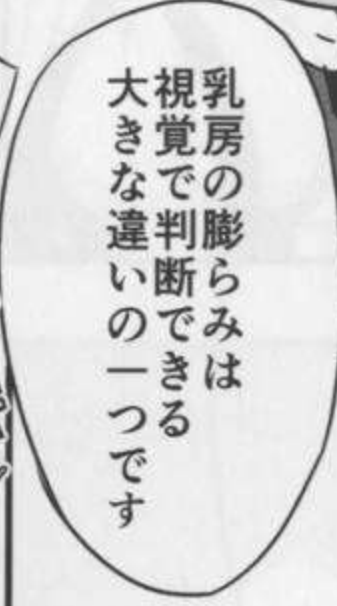 乳房の膨らみは
視覚で判断できる
大きな違いの一つです